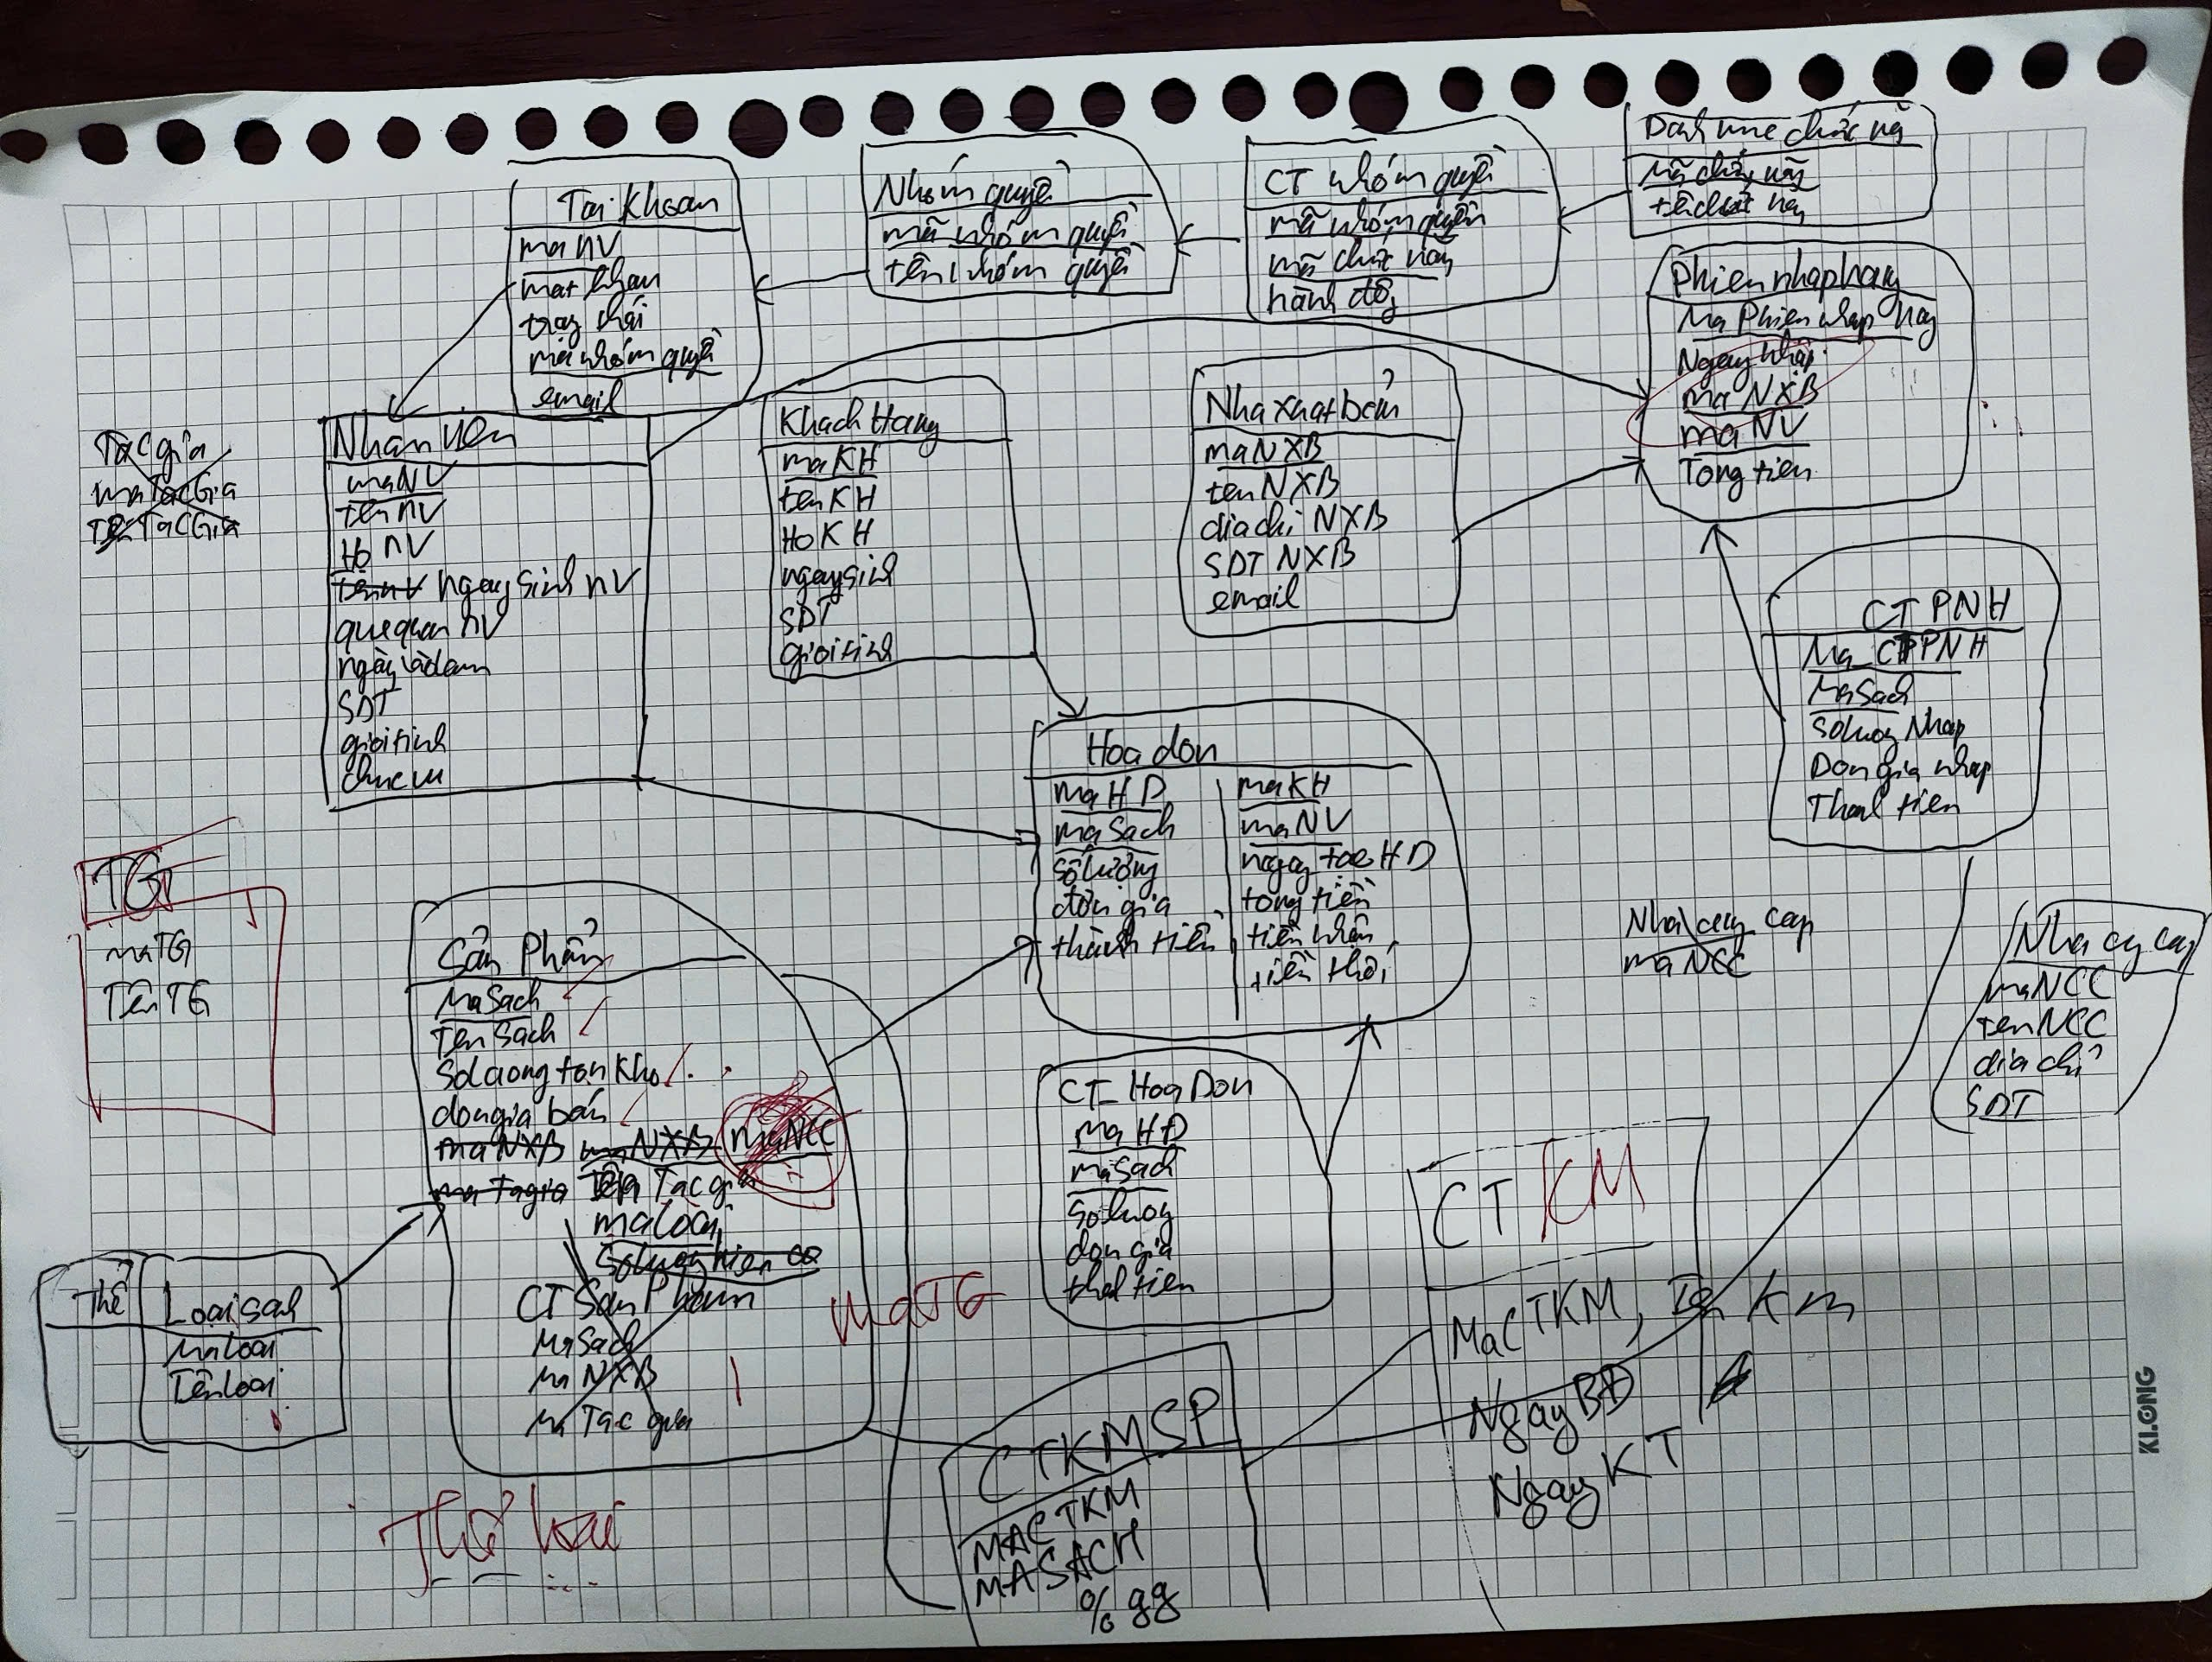 Tai Khoan
ma NV
mat khau
trạng thái
mã nhóm quyền
email
Nhóm quyền
mã nhóm quyền
tên nhóm quyền
CT nhóm quyền
mã nhóm quyền
mã chức năng
hành động
Danh mục chức năng
Mã chức năng
tên chức năng
Phien nhap hang
Ma Phien nhap hang
Ngay nhập
ma NXB
ma NV
Tong tien
Tac gia
ma Tac Gia
Tên Tac Gia
Nhan vien
ma NV
ten NV
Ho NV
ten nv ngay sinh nv
que quan NV
ngày vào lam
SDT
gioi tinh
chuc vu
Khach Hang
ma KH
ten KH
Ho KH
ngay sinh
SDT
gioi tinh
Nha xuat bản
ma NXB
ten NXB
dia chi NXB
SDT NXB
email
CT PNH
Ma_CTPNH
Ma Sach
So luong Nhap
Don gia nhap
Thanh tien
Hoa don
ma HD
ma Sach
số lượng
đơn gia
thành tiền
ma KH
ma NV
ngay tao HD
tong tiền
tiền nhận
tiền thối
TG
ma TG
Tên TG
Sản Phẩm
Ma Sach
Ten Sach
So luong ton kho
don gia bán
ma NXB ma NXB ma NCC
ma Tac gia Tên Tac gia
ma loai
So luong hien co
CT San Pham
Ma Sach
Ma NXB
Ma Tac gia
ma TG
Nha cung cap
ma NCC
Nha cung cap
ma NCC
ten NCC
dia chỉ
SDT
CT_Hoa Don
Ma HD
ma Sach
So luong
don gia
thanh tien
CT KM
Ma CTKM, Ten Km
Ngay BĐ
Ngay KT
Thể
Loai sach
Ma Loai
Tên loai
CTKMSP
MACTKM
MASACH
% gg
Thể loại
KLONG